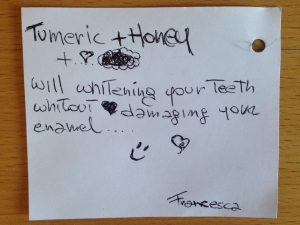 Tumeric + Honey
+...
will whitening your teeth
whitout damaging your
enamel....
Francesca